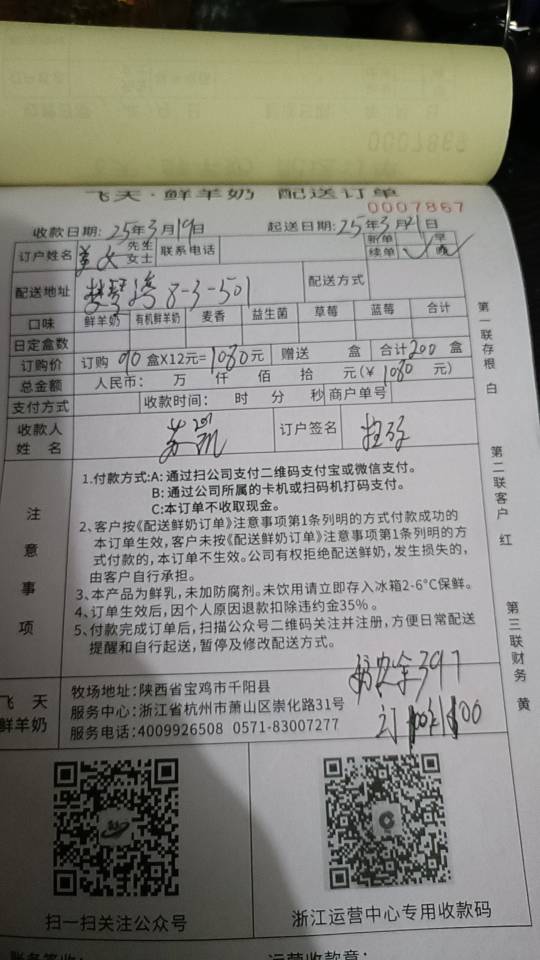 飞天·鲜羊奶 配送订单
0007867
收款日期: 25年3月19日 起送日期: 25年3月21日
订户姓名 姜女 先生 女士 联系电话 新单 早 续单 ✓ 晚 ✓
配送地址 湾8-3-501 配送方式
口味 鲜羊奶 有机鲜羊奶 麦香 益生菌 草莓 蓝莓 合计
日定盒数
订购价 订购 90 盒X12元= 1080元 赠送 盒 合计200盒
总金额 人民币: 万 仟 佰 拾 元(¥ 1080 元)
支付方式 收款时间: 时 分 秒 商户单号
收款人姓名 苏凯 订户签名
注意事项
1.付款方式:A: 通过扫公司支付二维码支付宝或微信支付。
B: 通过公司所属的卡机或扫码机打码支付。
C:本订单不收取现金。
2、客户按《配送鲜奶订单》注意事项第1条列明的方式付款成功的
本订单生效，客户未按《配送鲜奶订单》注意事项第1条列明的方
式付款的，本订单不生效。公司有权拒绝配送鲜奶，发生损失的，
由客户自行承担。
3、本产品为鲜乳，未加防腐剂。未饮用请立即存入冰箱2-6°C保鲜。
4、订单生效后，因个人原因退款扣除违约金35% 。
5、付款完成订单后，扫描公众号二维码关注并注册，方便日常配送
提醒和自行起送，暂停及修改配送方式。
第一联存根 白
第二联客户 红
第三联财务 黄
飞天鲜羊奶
牧场地址: 陕西省宝鸡市千阳县
服务中心: 浙江省杭州市萧山区崇化路31号
服务电话: 4009926508 0571-83007277
余397
订
扫一扫关注公众号
浙江运营中心专用收款码
运营收款章: